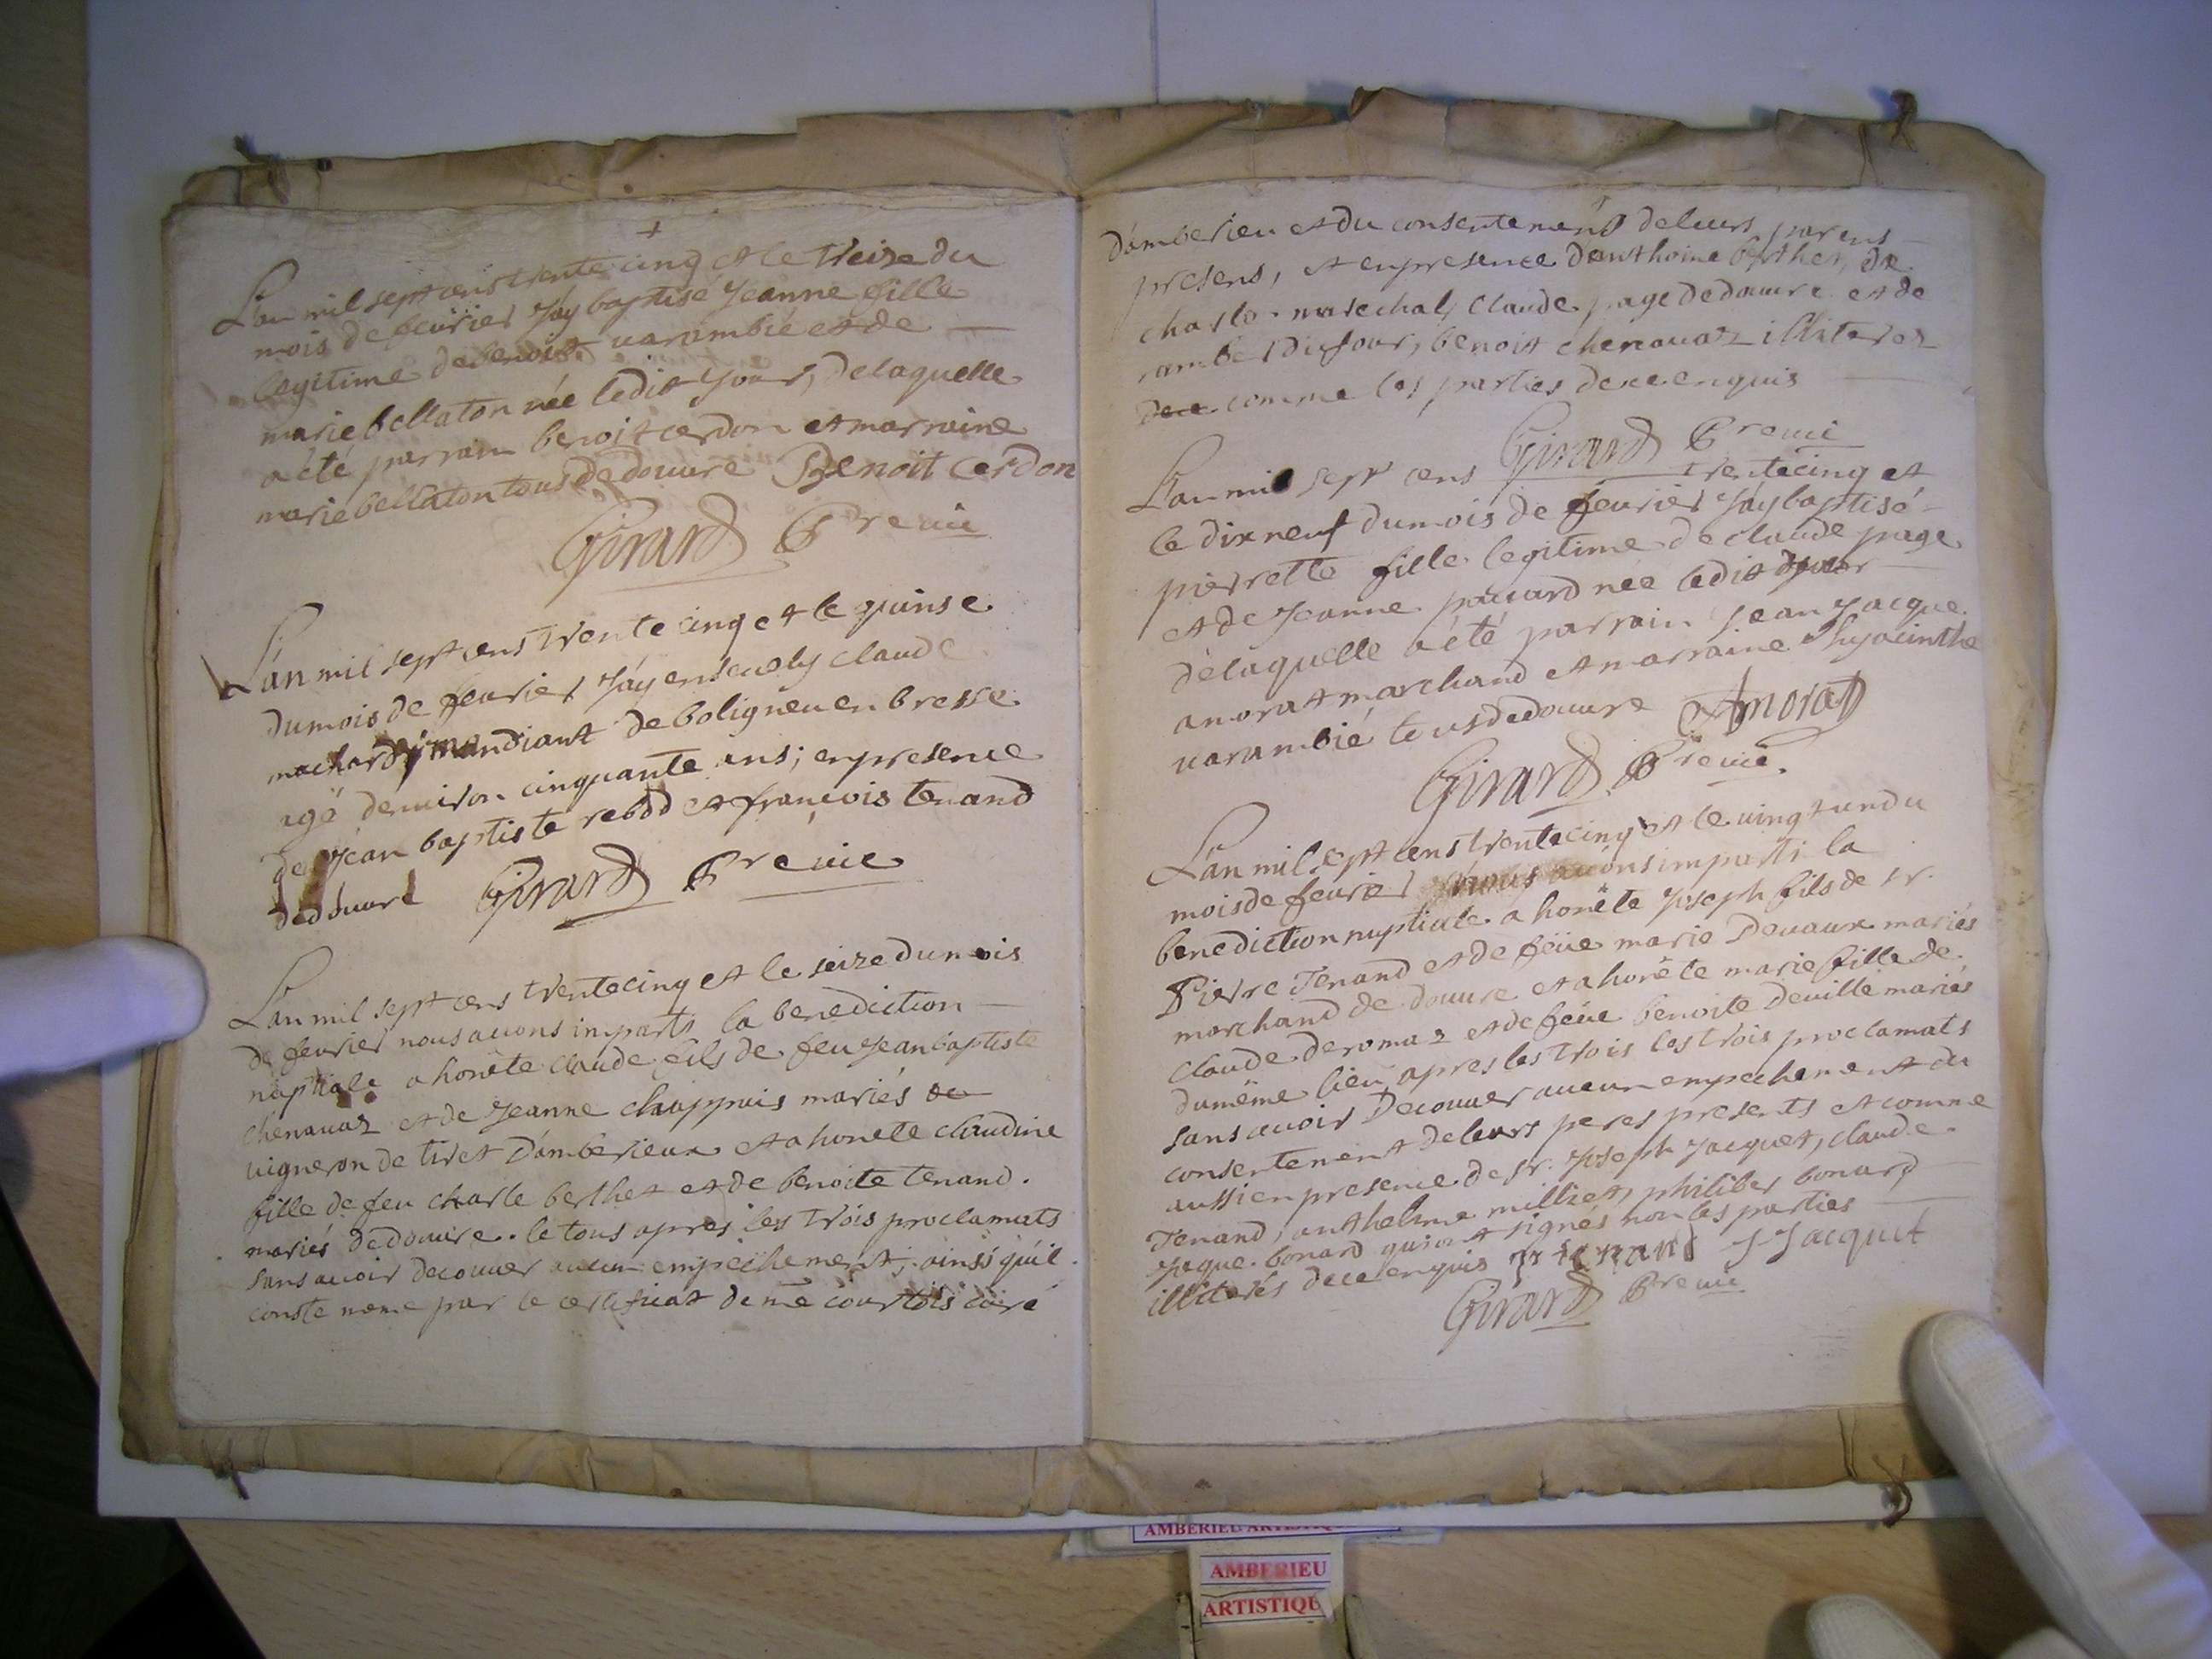 L'an mil sept cens trente cinq et le treize du
mois de feurier j'ay baptisé jeanne fille
legitime de benoist uarambié et de
marie bellaton née ledit jour, de laquelle
a été parrain benoit cerdon et marraine
marie bellaton tous de douure Benoit Cerdon
Girard
L'an mil sept cens trente cinq et le quinse
du mois de feurier j'ay enseuely claude
mandiant de boligneu en bresse
agé d'enuiron cinquante ans; en presence
de jean baptiste rebod et françois tenand
de douure Girard
L'an mil sept cens trente cinq et le seize du mois
de feurier nous auons imparti la benediction
nuptiale a honéte claude fils de feu jean baptiste
chenauaz et de jeanne chappuis mariés
uigneron de tiret d'amberieux et a honéte claudine
fille de feu charle berthet et de benoite tenand
mariés de douure. le tous apres les trois proclamats
sans auoir decouuer aucun empechement; ainsi qu'il
conste meme par le certificat de me courtois curé
d'amberieu et du consentement de leurs parens
presens, et en presence d'anthoine berthet, de
charle marechal, claude page de douure et de
dufour, benoit chenauaz illiterez
comme les parties de ce enquis
Girard
L'an mil sept cens trente cinq et
le dix neuf du mois de feurier j'ay baptisé
pierrette fille legitime de claude page
et de jeanne née ledit jour
de laquelle a été parrain jean jacque
amorat marchand et marraine hyacinthe
uarambié tous de douure Amorat
Girard
L'an mil sept cens trente cinq et le uingt un du
mois de feurier nous auons imparti la
benediction nuptiale a honéte joseph fils de sr.
Pierre Tenand et de feüe marie Deuaux mariés
marchand de douure et a honéte marie fille de
claude deromaz et de feüe benoite deuille mariés
du méme lieu apres les trois les trois proclamats
sans auoir decouuer aucun empechement du
consentement de leurs peres presents et comme
aussi en presence de sr. joseph jacquet, claude
Tenand, anthelme milliet, philiber bonard
jaque bonard qui ont signés non les parties
illiterés de ce enquis J Jacquet
Girard
AMBERIEU
ARTISTIQU